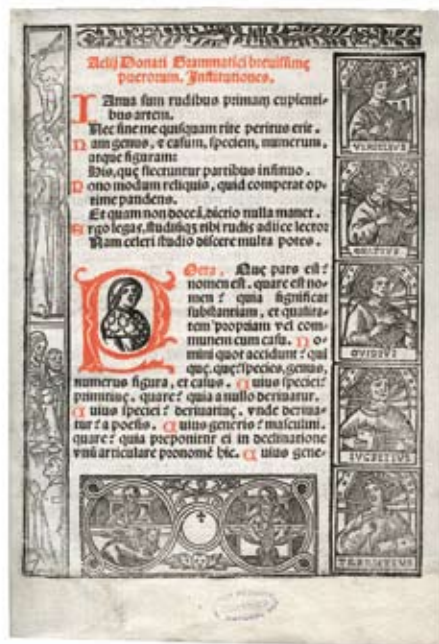 Aelij Donati Grammatici breuissime
puerorum. Institutiones.
IAnua sum rudibus primam cupienti-
bus artem.
Nec sine me quisquam rite peritus erit.
Nam genus, & casum, speciem, numerum,
atque figuram:
His, quę flectuntur partibus insinuo.
Pono modum reliquis, quid competat op-
time pandens.
Et quam non doceā, dictio nulla manet.
Ergo legas, studiūqȝ tibi rudis adiice lector
Nam celeri studio discere multa potes.
POeta, Quę pars est?
nomen est. quare est no-
men? quia significat
substantiam, et qualita-
tem propriam vel com-
munem cum casu. No-
mini quot accidunt? qui
quę. quę? species, genus,
numerus figura, et casus. Cuius speciei?
primitiuę. quare? quia a nullo deriuatur.
Cuius speciei? deriuatiaę. vnde deriua-
tur? a poesis. Cuius generis? masculini.
quare? quia preponitur ei in declinatione
vnū articulare pronomē hic. Cuius gene-
VERGILIVS
ORATIVS
OVIDIVS
LVCRETIVS
TERENTIVS